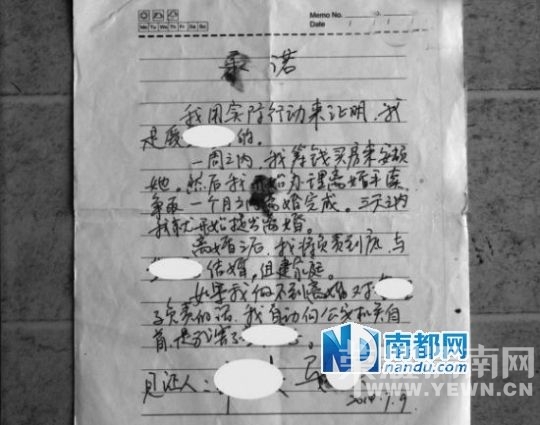 Memo No.
Mo Tu We Th Fr Sa Su
Date
承诺
我用实际行动来证明,我
是爱 的。
一周之内,我筹钱买房来安顿
她。然后我 办理离婚手续
争取一个月之内离婚完成。三天之内
我就开始提出离婚。
离婚之后,我将负责到底,与
结婚,组建家庭。
如果我做不到离婚对
负责的话,我自动向公安机关自
首,是我害了 。
见证人:
2014.7.9
南都网
nandu.com
南网
WWW.YEWN.CN